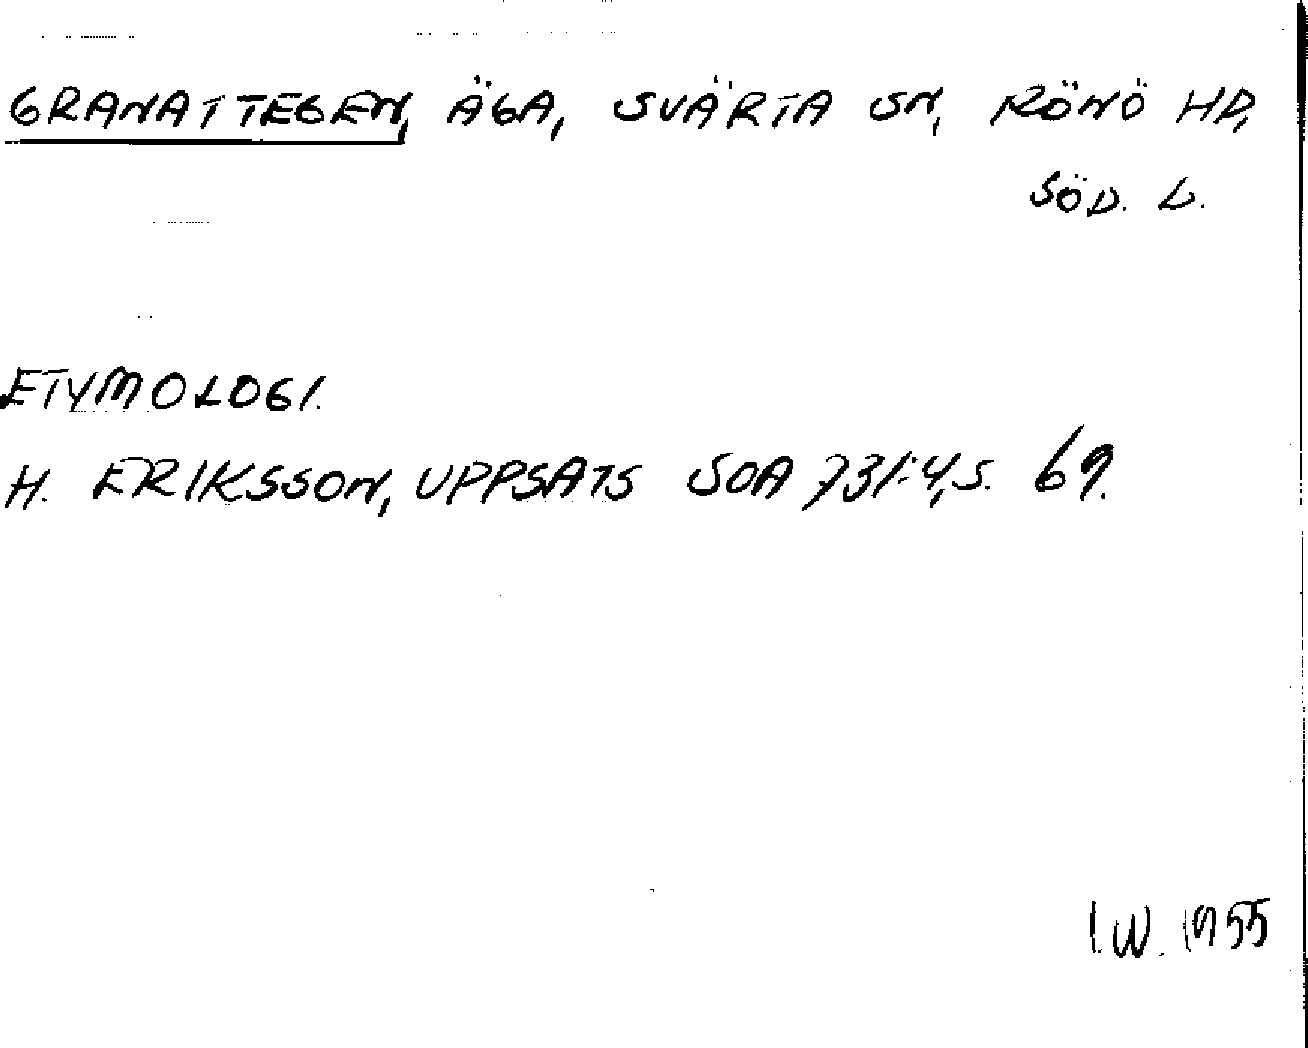 GRANATTEGEN, ÄGA, SVÄRTA SN, RÖNÖ HD,
SÖD. L.
ETYMOLOGI.
H. ERIKSSON, UPPSATS SOA 731:4, S. 69.
I.W. 1955